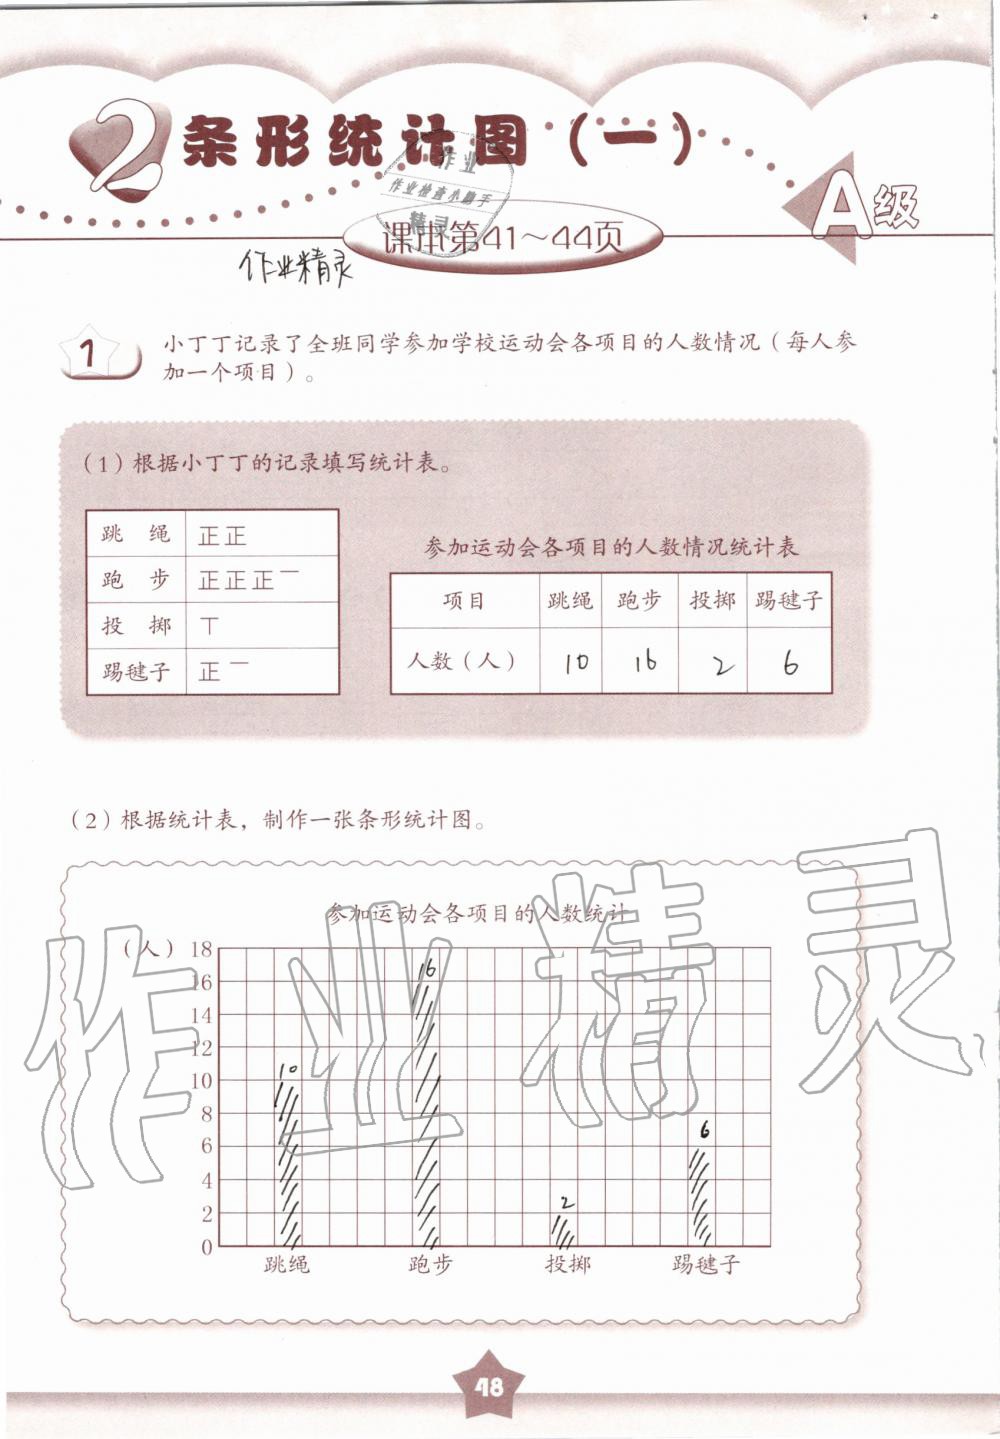 2 条形统计图（一）
A级
作业
作业检查小助手
精灵
课本第41～44页
作业精灵
1 小丁丁记录了全班同学参加学校运动会各项目的人数情况（每人参
加一个项目）。
（1）根据小丁丁的记录填写统计表。
跳绳 正正
跑步 正正正一
投掷 丅
踢毽子 正一
参加运动会各项目的人数情况统计表
项目 跳绳 跑步 投掷 踢毽子
人数（人） 10 16 2 6
（2）根据统计表，制作一张条形统计图。
参加运动会各项目的人数统计
（人）
18
16
14
12
10
8
6
4
2
0
10
16
2
6
跳绳 跑步 投掷 踢毽子
作业精灵
48